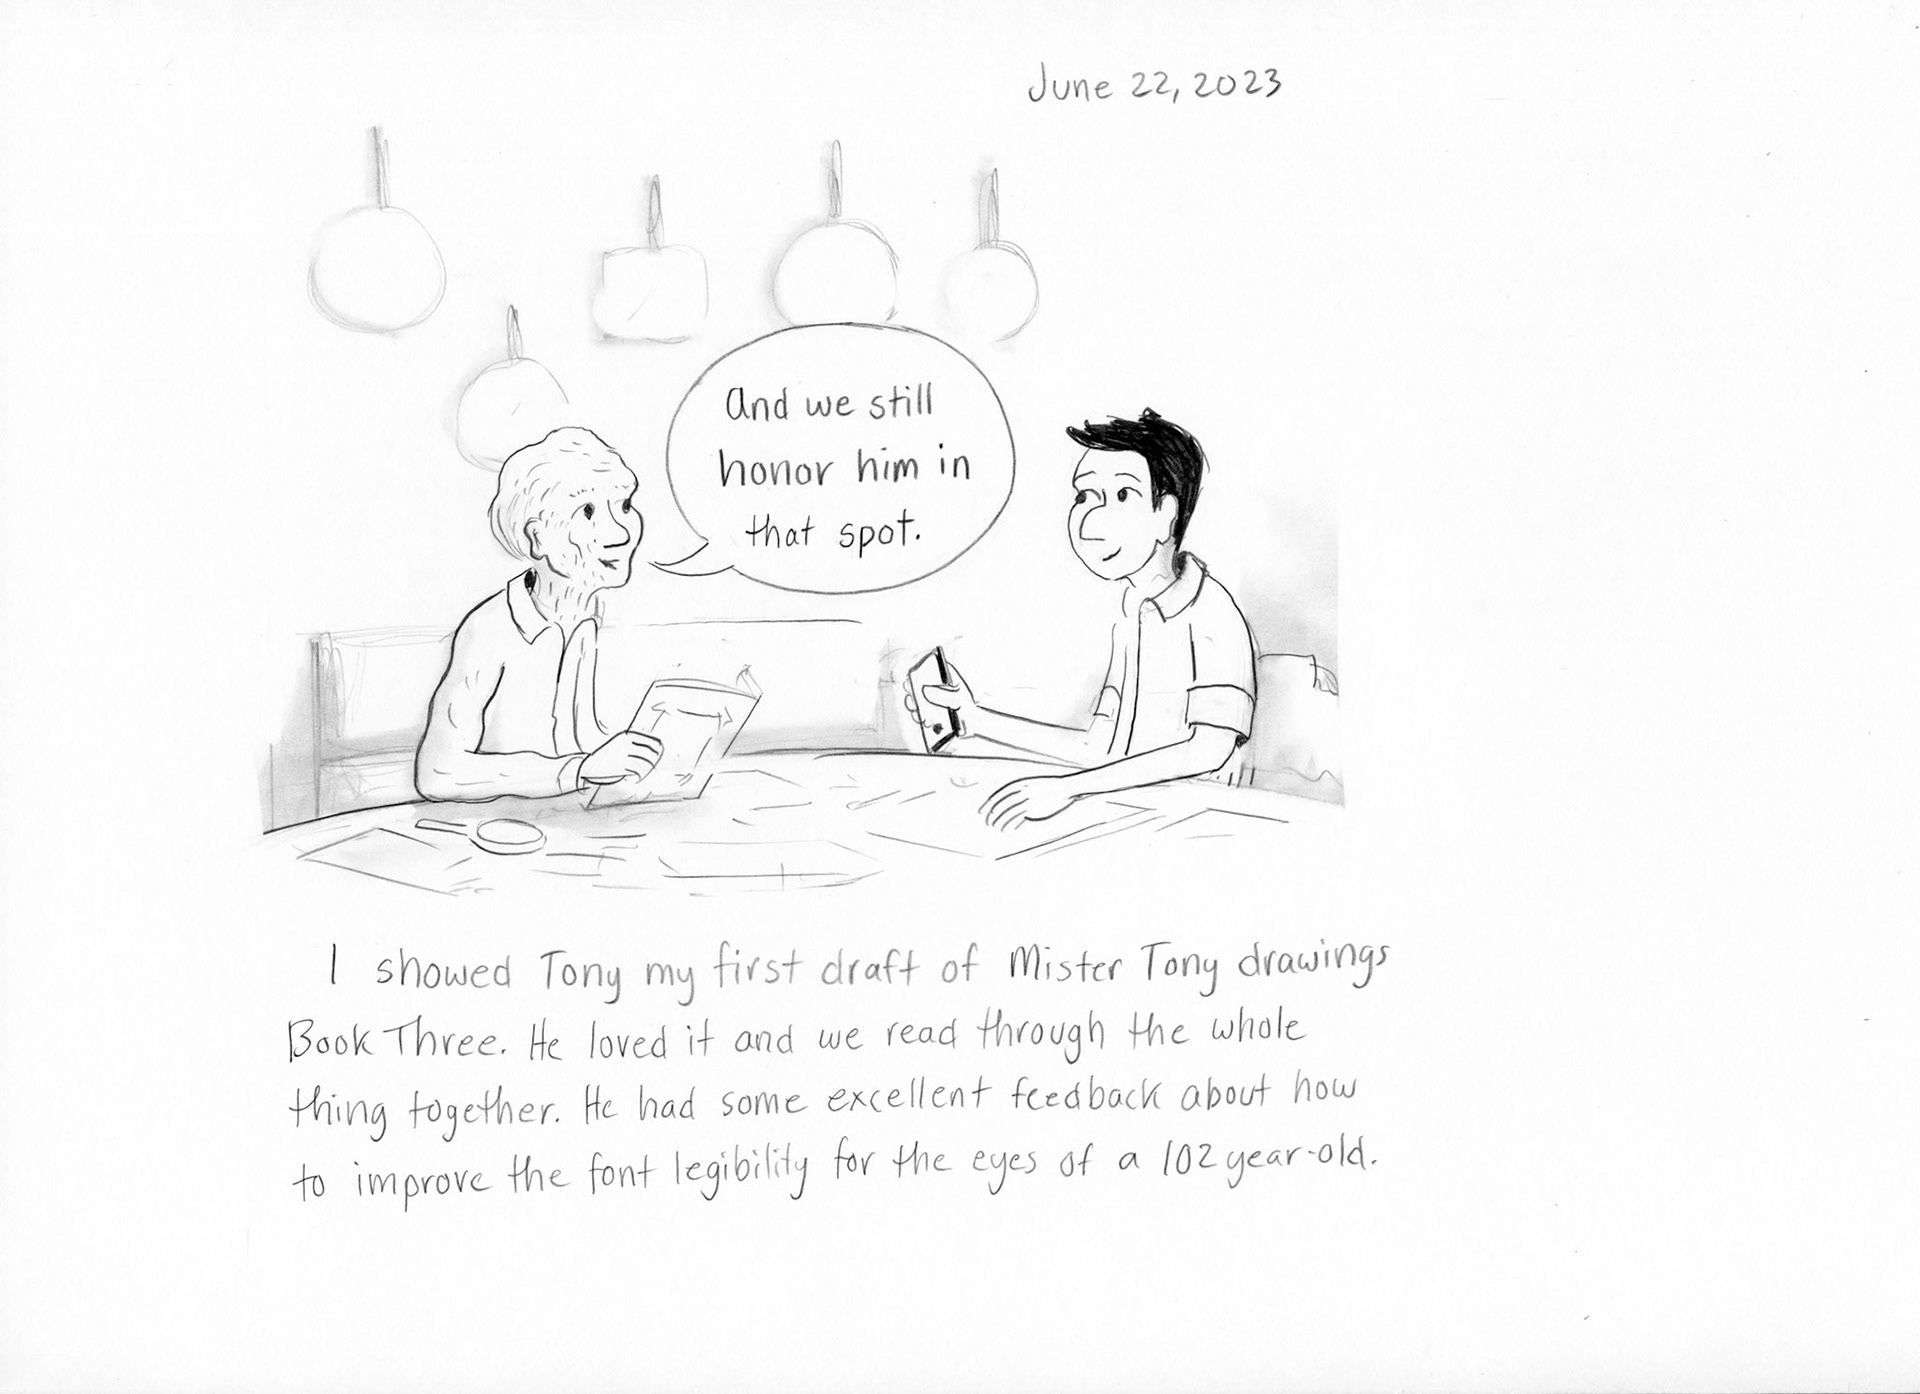 June 22, 2023
And we still
honor him in
that spot.
I showed Tony my first draft of Mister Tony drawings
Book Three. He loved it and we read through the whole
thing together. He had some excellent feedback about how
to improve the font legibility for the eyes of a 102 year-old.